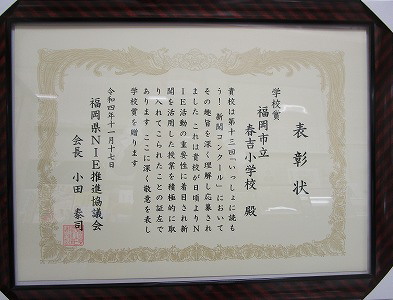 表彰状
学校賞
福岡市立
春吉小学校 殿
貴校は第十三回「いっしょに読も
う!新聞コンクール」において
その趣旨を深く理解し応募され
ました これは貴校が日頃よりN
IE活動の重要性に着目され新
聞を活用した授業を積極的に取
り入れてこられたことの証左で
あります ここに深く敬意を表し
学校賞を贈ります
令和四年十一月十七日
福岡県NIE推進協議会
会長 小田 泰司